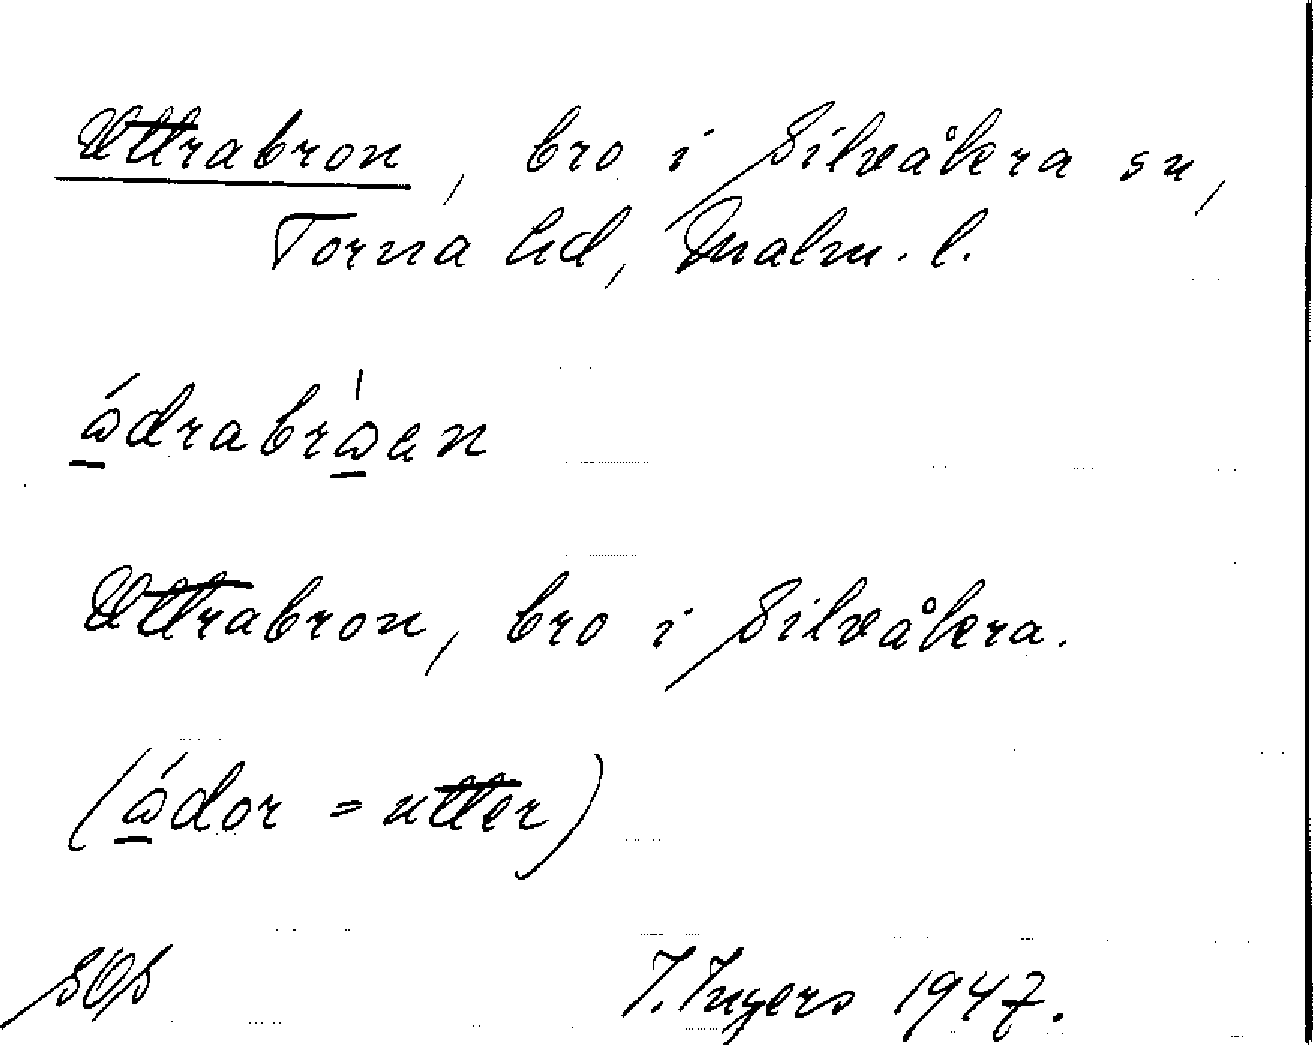 Uttrabron, bro i Silvåkra sn,
Torna hd, Malm. l.
ǻdrabrǻen
Uttrabron, bro i Silvåkra.
(ǻdor = utter)
SOS I. Ingers 1947.